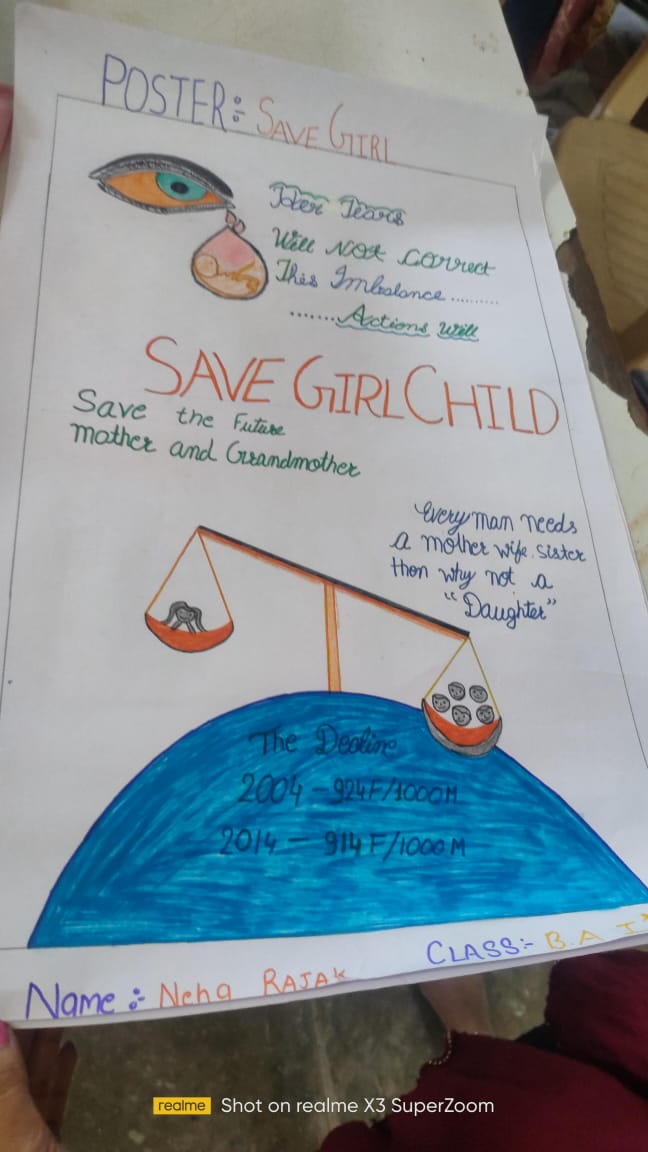 POSTER:- SAVE GIRL
Her Tears
Will Not Correct
This Imbalance ..........
.......Actions Will
SAVE GIRL CHILD
Save the Future
Mother and Grandmother
Every man needs
a mother wife. sister
then why not a
"Daughter"
The Decline
2004 - 924F/1000M
2014 - 914 F/1000 M
CLASS:- B.A I
Name :- Neha RAJAK
realme Shot on realme X3 SuperZoom